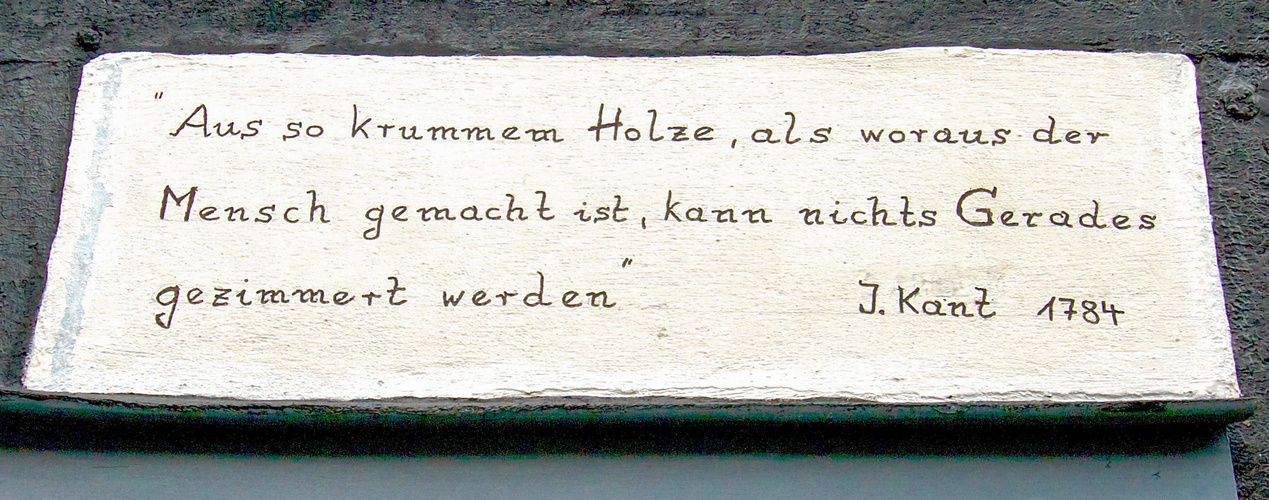 "Aus so krummem Holze, als woraus der
Mensch gemacht ist, kann nichts Gerades
gezimmert werden"
J. Kant 1784